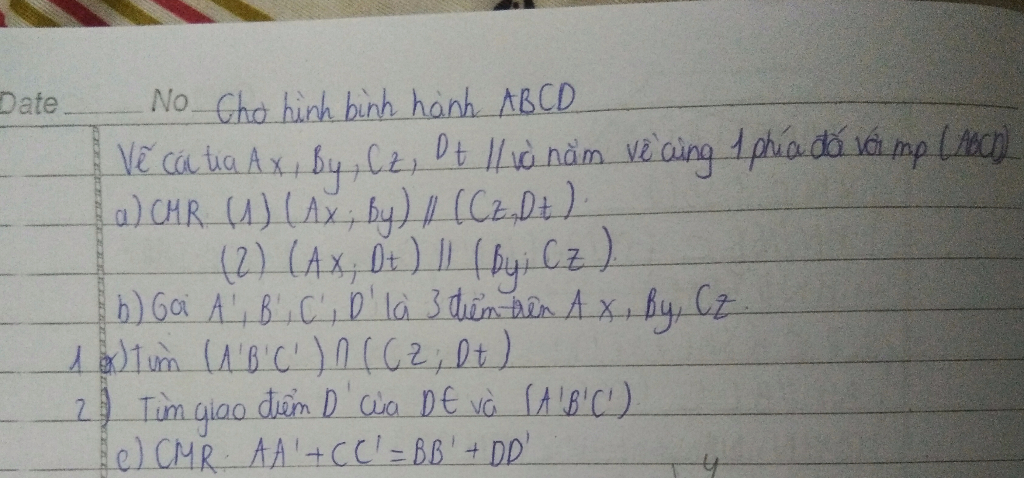 Date No Cho hình bình hành ABCD
Vẽ các tia Ax, By, Cz, Dt // và nằm về cùng 1 phía đố với mp (ABCD)
a) CMR (1) (Ax; By) // (Cz, Dt).
(2) (Ax; Dt) // (By; Cz).
b) Gọi A', B', C', D' là 3 điểm trên Ax, By, Cz.
1) Tìm (A'B'C') ∩ (Cz; Dt)
2) Tìm giao điểm D' của Dt và (A'B'C').
c) CMR: AA' + CC' = BB' + DD'
y